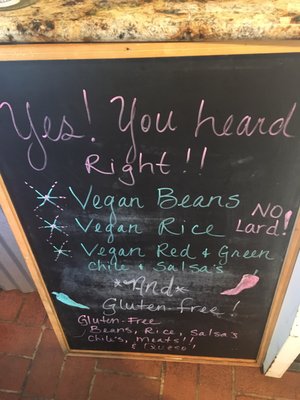 Yes! You heard
Right!!
Vegan Beans
Vegan Rice
NO Lard!
Vegan Red & Green
Chile & Salsa's
*And*
Gluten-free!
Gluten-Free
Beans, Rice, Salsa's
Chile's, Meats!!
& Queso!